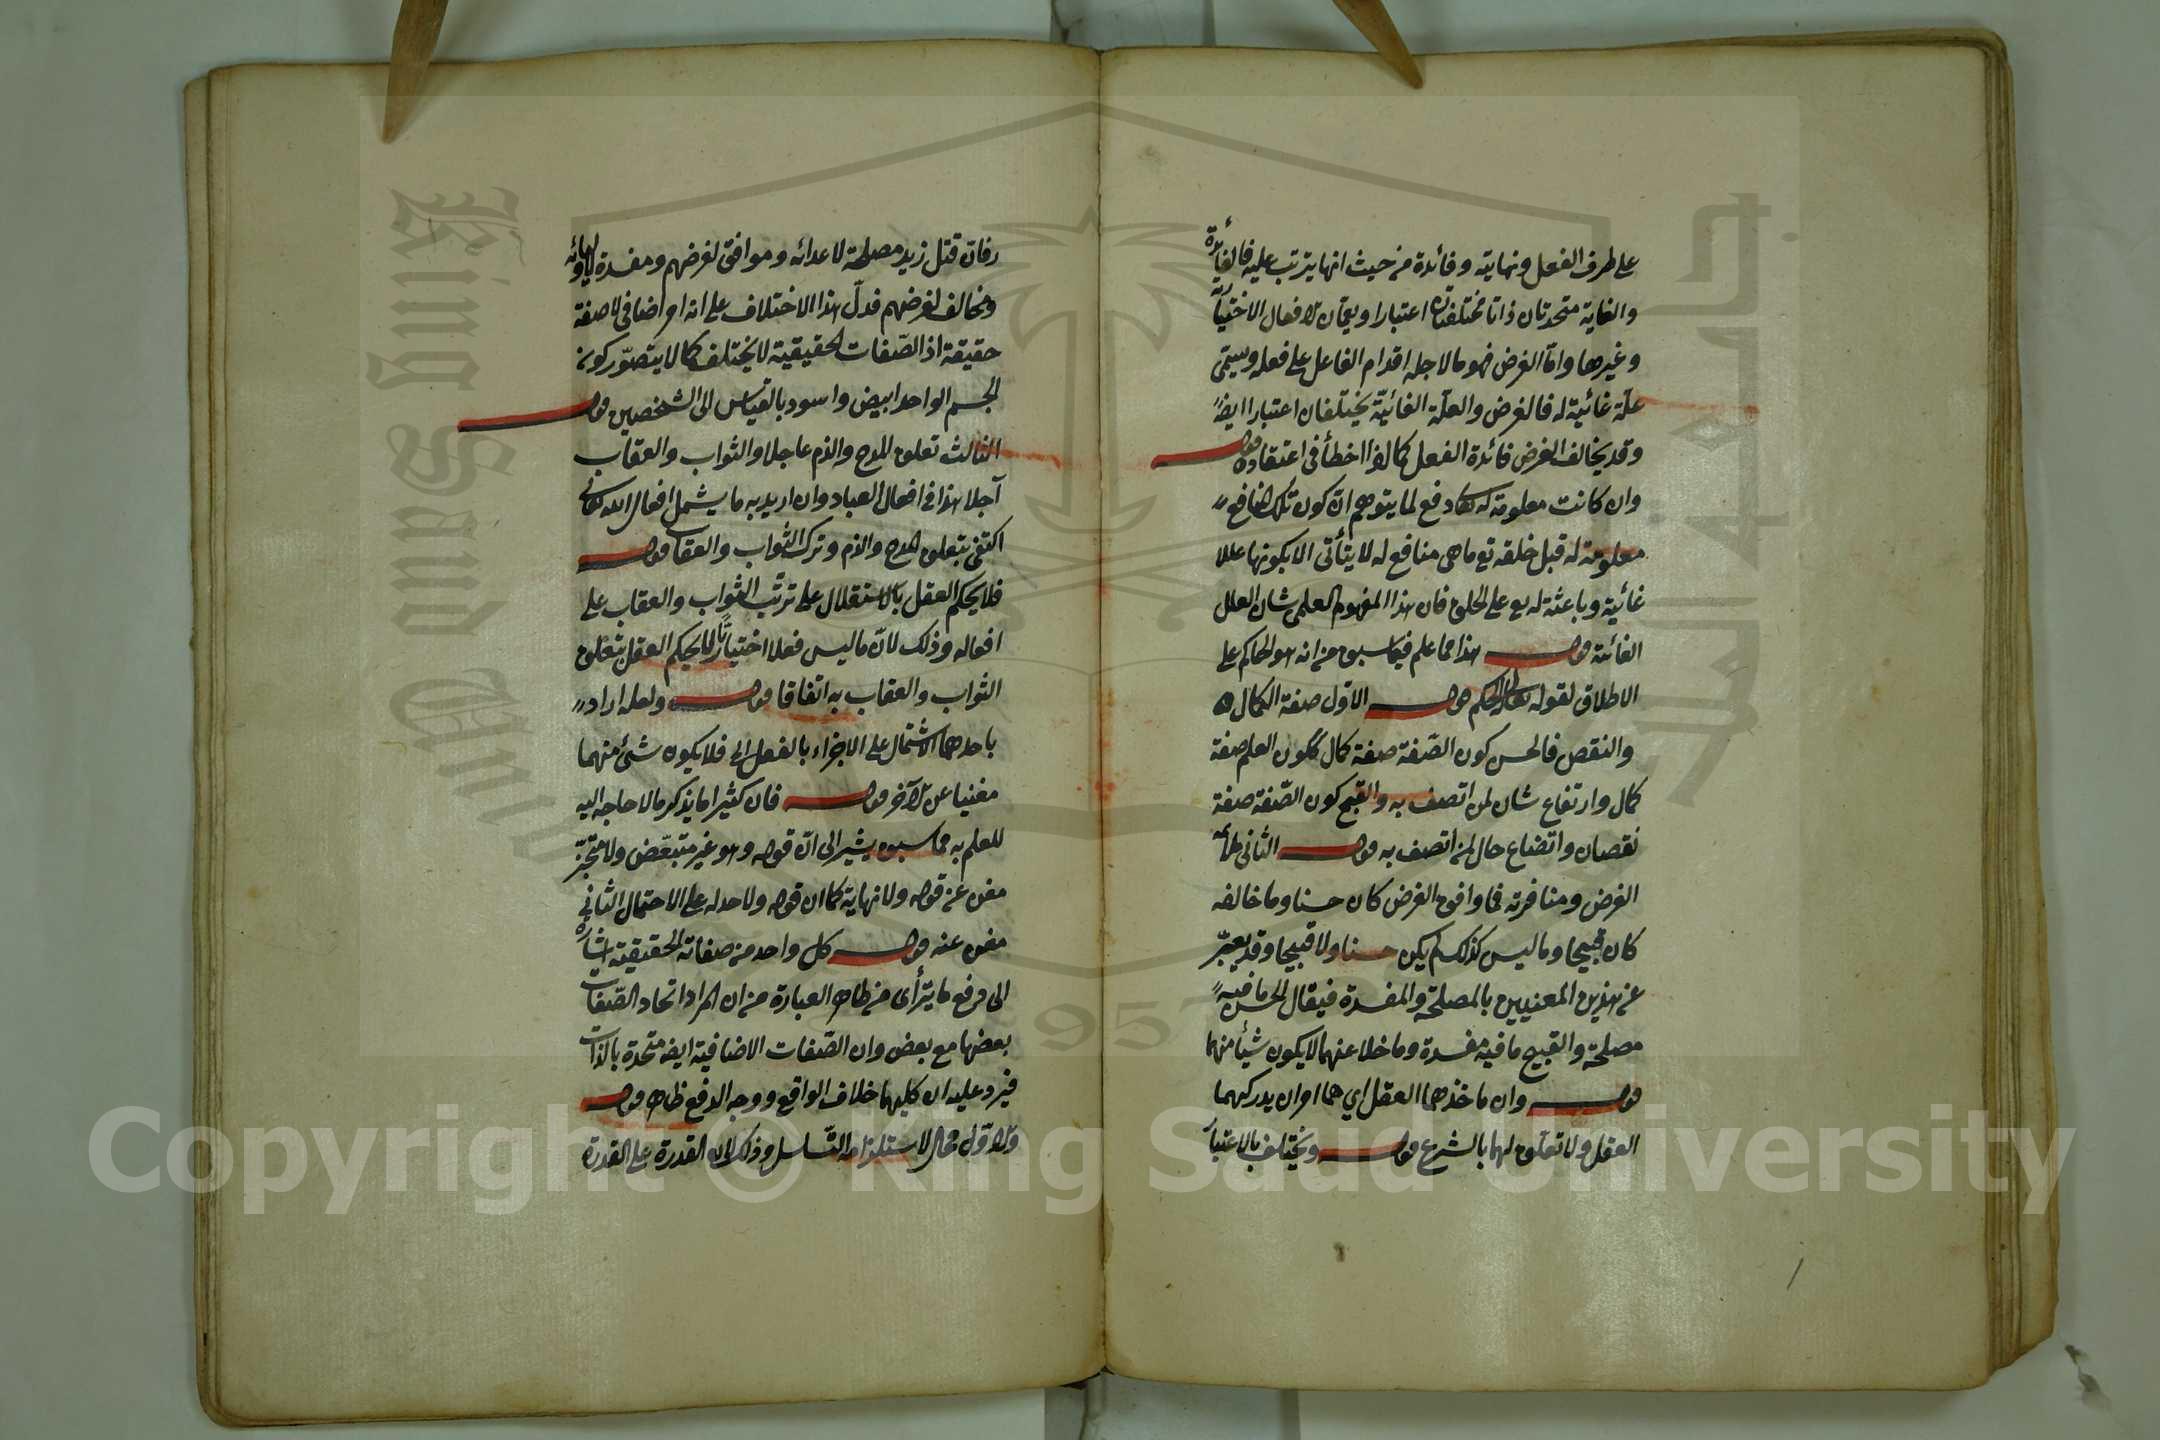 على طرف الفعل ونهايته وفائدة من حيث انها يترتب عليه فالفائدة
والغاية متحدتان ذاتا مختلفتان اعتبارا ويعمان الافعال الاختيارية
وغيرها واما الغرض فهو ما لاجله اقدام الفاعل على فعله ويسمى
علّة غائية له فالغرض والعلّة الغائيّة يختلفان اعتبارا ايضا
وقد يخالف الغرض فائدة الفعل كما اذا اخطأ في اعتقاده قوله
وان كانت معلومة له تعالى دفع لما يتوهم انّ كون تلك المنافع
معلومة له قبل خلقه تع ما هى منافع له لا يتأتى الا بكونها عللا
غائية وباعثة له يع على الخلق فان هذا المفهوم العلمى شان العلل
الغائية قوله هذا مما علم فيما سبق من انه هو الحاكم على
الاطلاق لقوله تعالى له الحكم قوله الاول صفة الكمال
والنقص فالحسن كون الصّفة صفة كمال ككون العلم صفة
كمال وارتفاع شان لمن اتصف به والقبح كون الصّفة صفة
نقصان واتضاع حال لمن اتصف به قوله الثانى ملائمة
الغرض ومنافرته فما وافق الغرض كان حسنا وما خالفه
كان قبيحا وما ليس كذلك لم يكن حسنا ولا قبيحا وقد يعبّر
عن هذين المعنيين بالمصلحة والمفسدة فيقال الحسن ما فيه
مصلحة والقبيح ما فيه مفسدة وما خلا عنهما لا يكون شيأ منهما
قوله وان ماخذهما العقل اي هما امران يدركهما
العقل ولا تعلّق لهما بالشرع قوله ويختلف بالاعتبار
فان قتل زيد مصلحة لاعدائه وموافق لغرضهم ومفسدة لاوليائه
ومخالف لغرضهم فدلّ هذا الاختلاف على انه امر اضافى لا صفة
حقيقة اذ الصّفات الحقيقية لا يختلف كما لا يتصوّر كون
الجسم الواحد ابيض واسود بالقياس الى الشخصين قوله
الثالث تعلق المدح والذم عاجلا والثواب والعقاب
آجلا هذا في افعال العباد وان اريد به ما يشمل افعال الله تعالى
اكتفى بتعلق المدح والذم وترك الثّواب والعقاب قوله
فلا يحكم العقل بالاستقلال على ترتّب الثواب والعقاب على
افعاله وذلك لانّ ما ليس فعلا اختياريّا لا يحكم العقل بتعلق
الثواب والعقاب به اتفاقا قوله ولعله اراد
باحدهما الاشتمال على الاجزاء بالفعل الى فلا يكون شئ منهما
مغنيا عن الآخر قوله فان كثيرا ما يذكر ما لا حاجة اليه
للعلم به مما سبق يشير الى انّ قوله وهو غير متبعّض ولا متجزّ
مغن عن قوله ولا نهاية كما ان قوله ولا حد له على الاحتمال الثاني
مغن عنه قوله كل واحد من صفاته الحقيقية اشارة
الى دفع ما يترأى من ظاهر العبارة من ان المراد اتحاد الصّفات
بعضها مع بعض وان الصّفات الاضافية ايضا متحدة بالذات
فيرد عليه ان كليهما خلاف الواقع ووجه الدفع ظاهر قوله
والاوّل محال لاستلزامه التّسلسل وذلك لان القدرة على القدرة
King Saud University
1957
Copyright © King Saud University